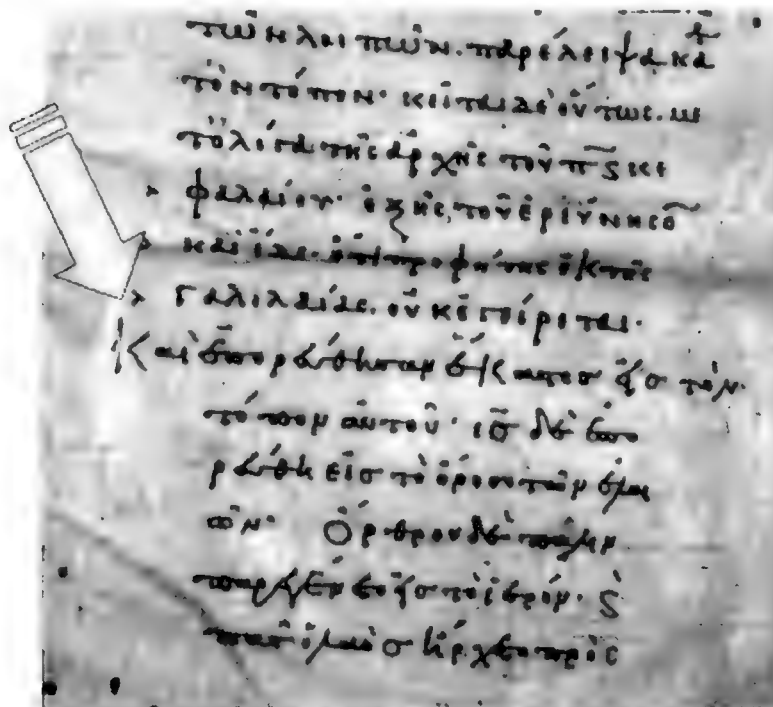 τῶν λειπῶν. παρέλειψα κα̅τ
τὸν τόπον· κεῖται δὲ οὕτως. με
τ' ὀλίγα τῆς ἀρχῆς τοῦ π̅ϛ̅ κε
φαλαίου· ἑξῆς, τοῦ ἐρεύνησο̅
καὶ ἴδε. ὅτι προφήτης ἐκ τῆς
γαλιλαίας. οὐκ ἐγείρεται·
Καὶ ἐπορεύθησαν ἕκαστος εἰς τὸν
τόπον αὐτοῦ· ι̅ς̅ δὲ ἐπο
ρεύθη εἰς τὸ ὄρος τῶν ἐλαι
ῶν· Ὄρθρου δὲ πάλιν
παργέν ετο εἰς τὸ ἱερόν· ϗ
πᾶς ὁ λαὸς ἤρχετο πρὸς